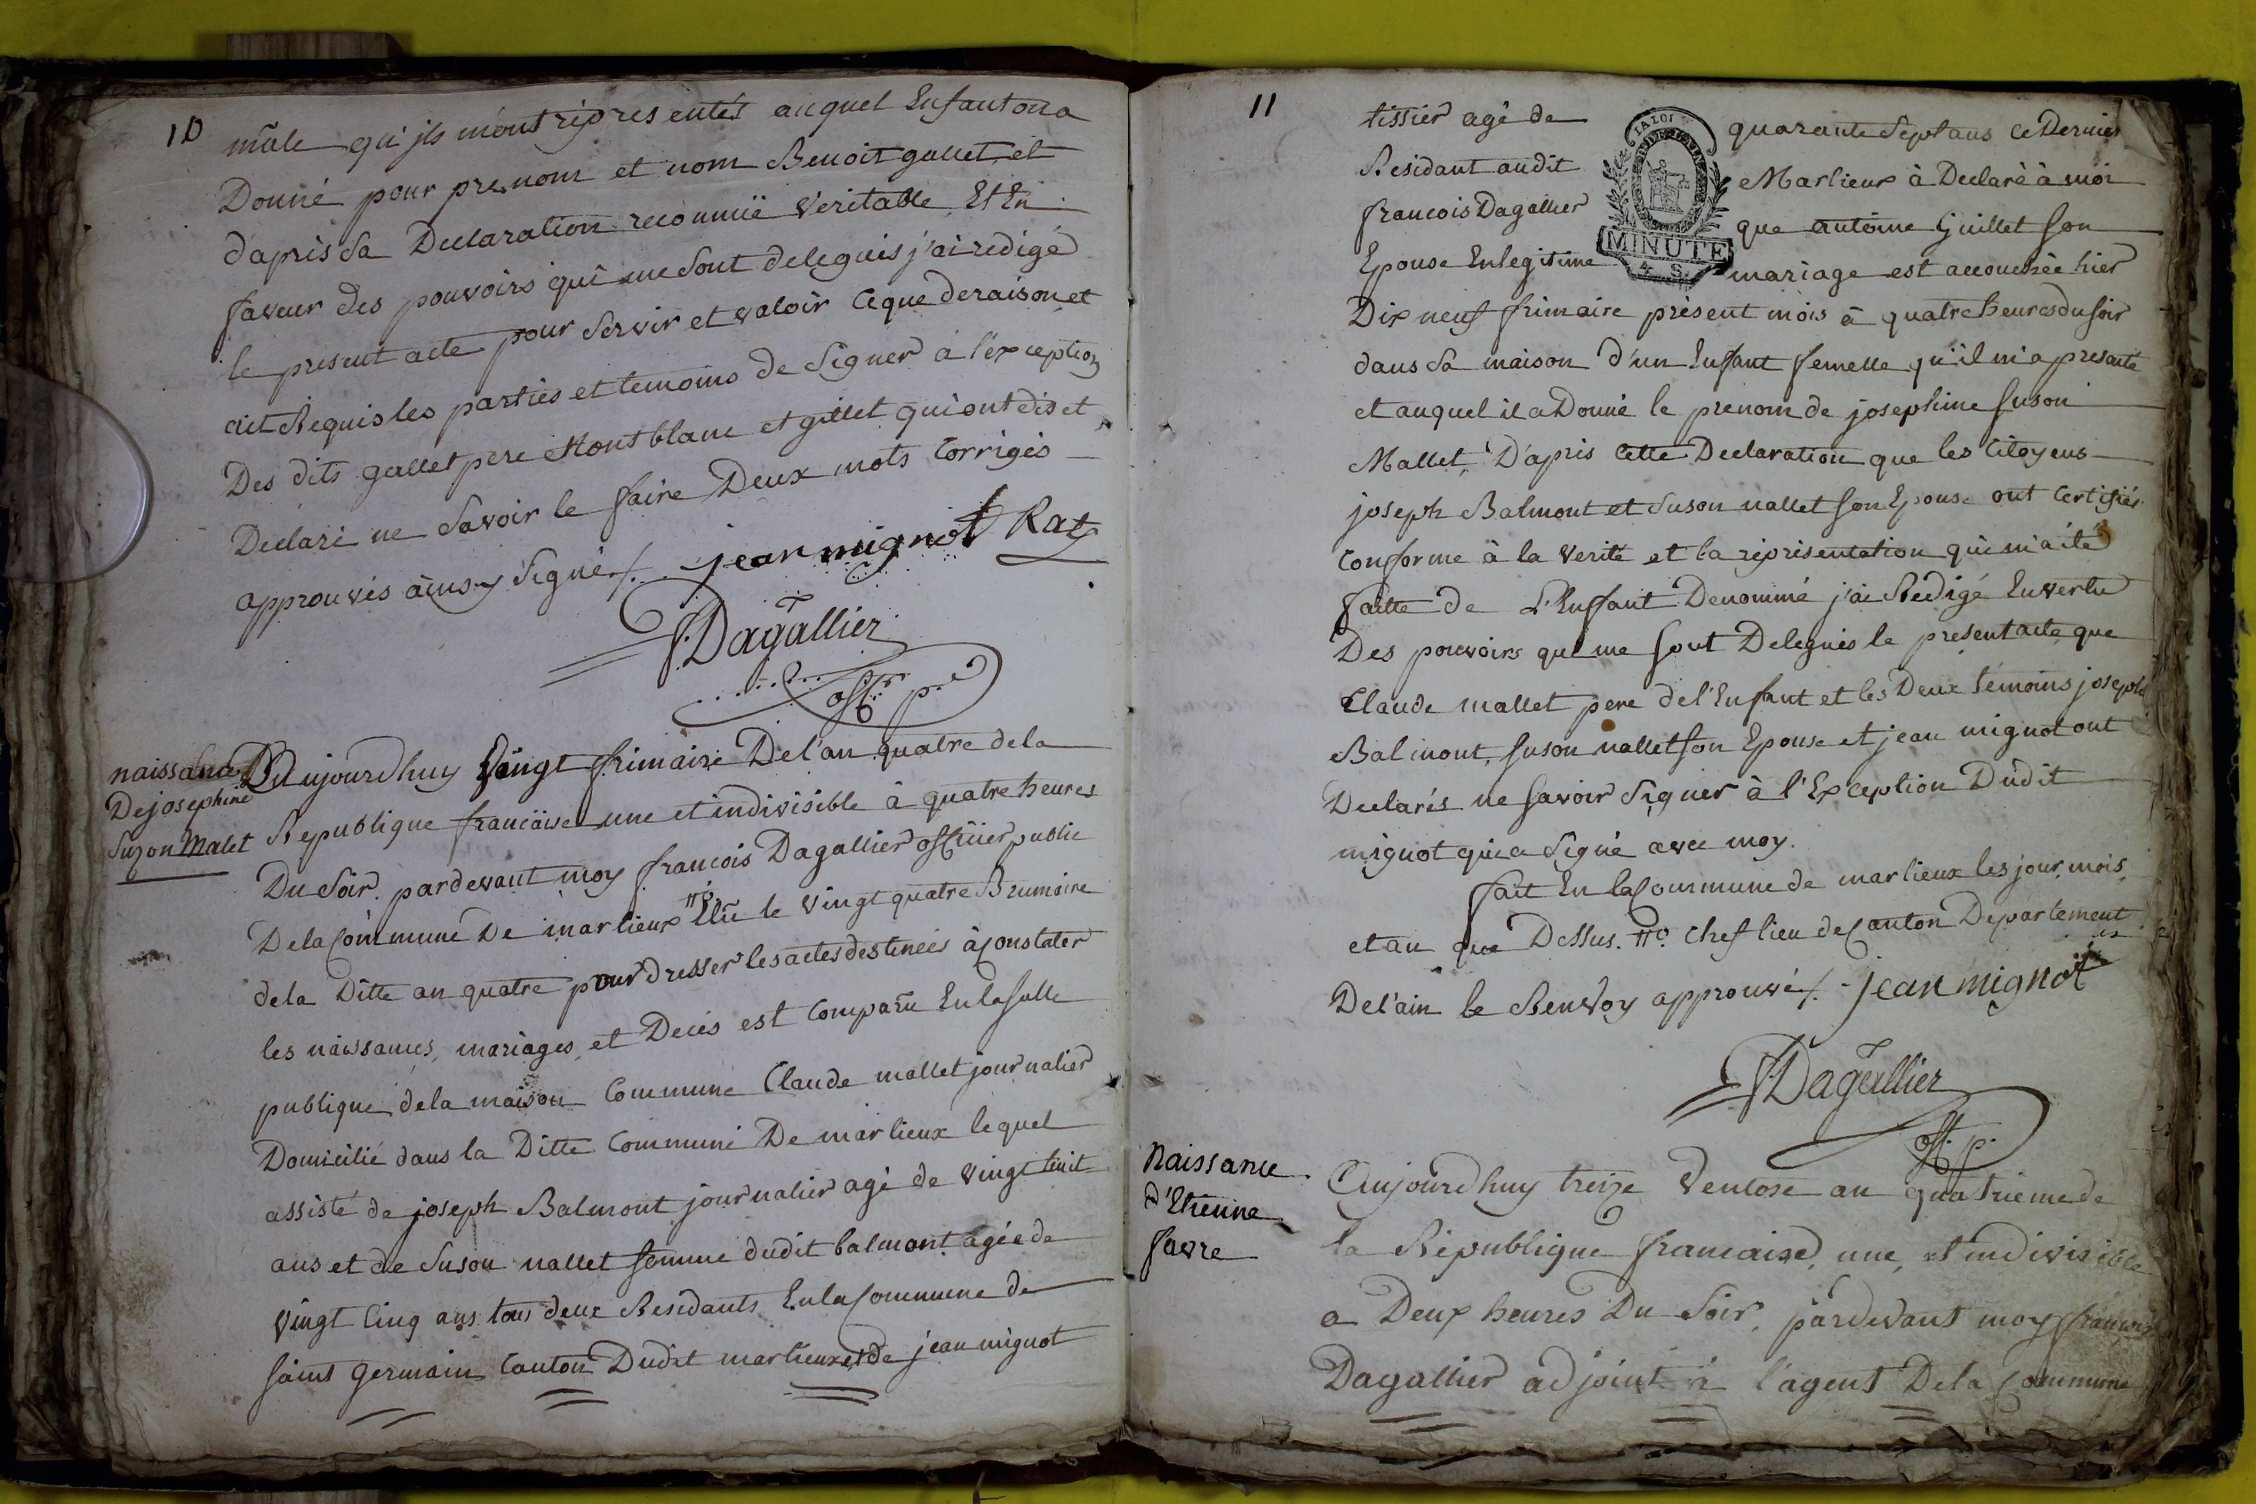 10
mâle qu'ils m'ont représentés auquel Enfant on a
Donné pour prenom et nom Benoit gallet, et
d'après Sa Declaration reconnuë Veritable Et En
faveur des pouvoirs qui me Sont delegués j'ai redigé
le present acte pour Servir et valoir Ce que de raison, et
ait Requis les parties et temoins de Signer à l'exception
Des dits gallet pere Montblanc et gillet qui ont dis et
Declaré ne Savoir le faire Deux mots Corrigés
approuvés ainsy Signé /. jean mignot Rat
f. Dagallier
off.er p.c
naissance
De josephine
Suzon Malet
Aujourdhuy Vingt frimaire De l'an quatre de la
Republique francaise une et indivisible à quatre heures
Du Soir. pardevant moy francois Dagallier officier public
De la Commune De marlieux #º Elu le Vingt quatre Brumaire
de la Ditte an quatre pour dresser les actes destineés à Constater
les naissances, mariages, et Decés est Comparu En la Salle
publique de la maison Commune Claude mallet journalier
Domicilié dans la Ditte Commune De marlieux lequel
assisté de joseph Balmont journalier agé de Vingt huit
ans et de Suson nallet femme dudit balmont agée de
Vingt Cinq ans tous deux Residants En la Commune de
saint Germain Canton Dudit marlieux et de jean mignot
11
tissier agé de quarante Sept ans Ce Dernier
Residant audit Marlieux à Declaré à moi
francois Dagallier que antoine Guillet Son
Epouse En legitime mariage est accouchée hier
LA LOI
MINUTE
4 S.
Dix neuf frimaire présent mois à quatre heures du soir
dans Sa maison d'un Enfant femelle qu'il m'a presanté
et auquel il a Donné le prenom de josephine Suson
Mallet, D'apris Cette Declaration que les Citoyens
joseph Balmont et Suson nallet Son Epouse ont Certifiés
Conforme à la Verité et la réprisentation qui m'a été
faitte de L'Enfant Denommé j'ai Redigé En vertu
Des pouvoirs qui me Sont Delegués le present acte que
Claude mallet pere de l'Enfant et les Deux temoins joseph
Balmont, Suson nallet Son Epouse et jean mignot ont
Declarés ne Savoir Signer à l'Exception Dudit
mignot qui a Signé avec moy.
fait En la Commune de marlieux les jour, mois,
et an que Dessus. #º Chef lieu de Canton Departement
De l'ain le Renvoy approuvé /. jean mignot
f. Dagallier
off. p.
Naissance
d'Etienne
favre
Aujourdhuy treize Ventose an quatrieme de
la République francaise, une, et indivisible
a Deux heures Du Soir, pardevant moy francois
Dagallier adjoint à l'agent De la Commune